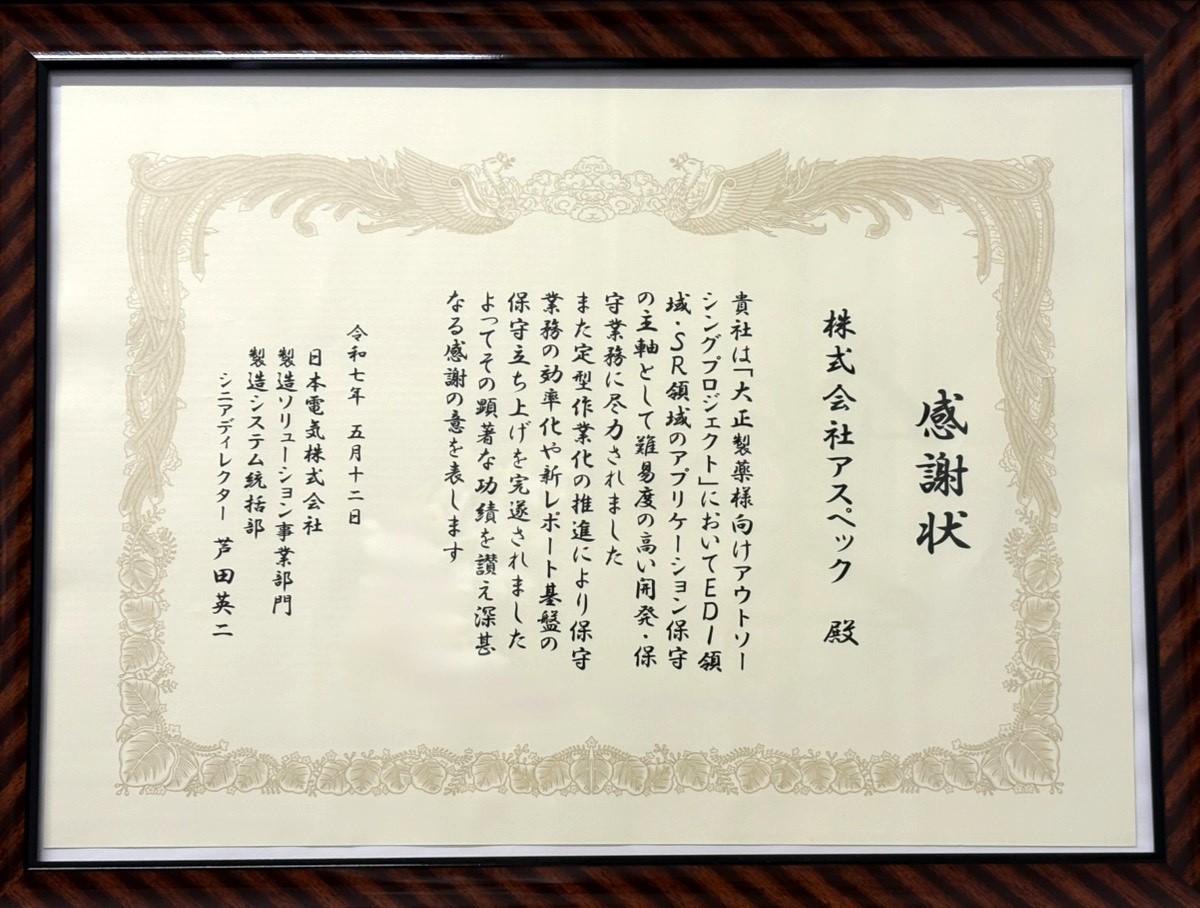 感謝状
株式会社アスペック 殿
貴社は「大正製薬様向けアウトソー
シングプロジェクト」においてEDI領
域・SR領域のアプリケーション保守
の主軸として難易度の高い開発・保
守業務に尽力されました
また定型作業化の推進により保守
業務の効率化や新レポート基盤の
保守立ち上げを完遂されました
よってその顕著な功績を讃え深甚
なる感謝の意を表します
令和七年 五月十二日
日本電気株式会社
製造ソリューション事業部門
製造システム統括部
シニアディレクター 芦田英二